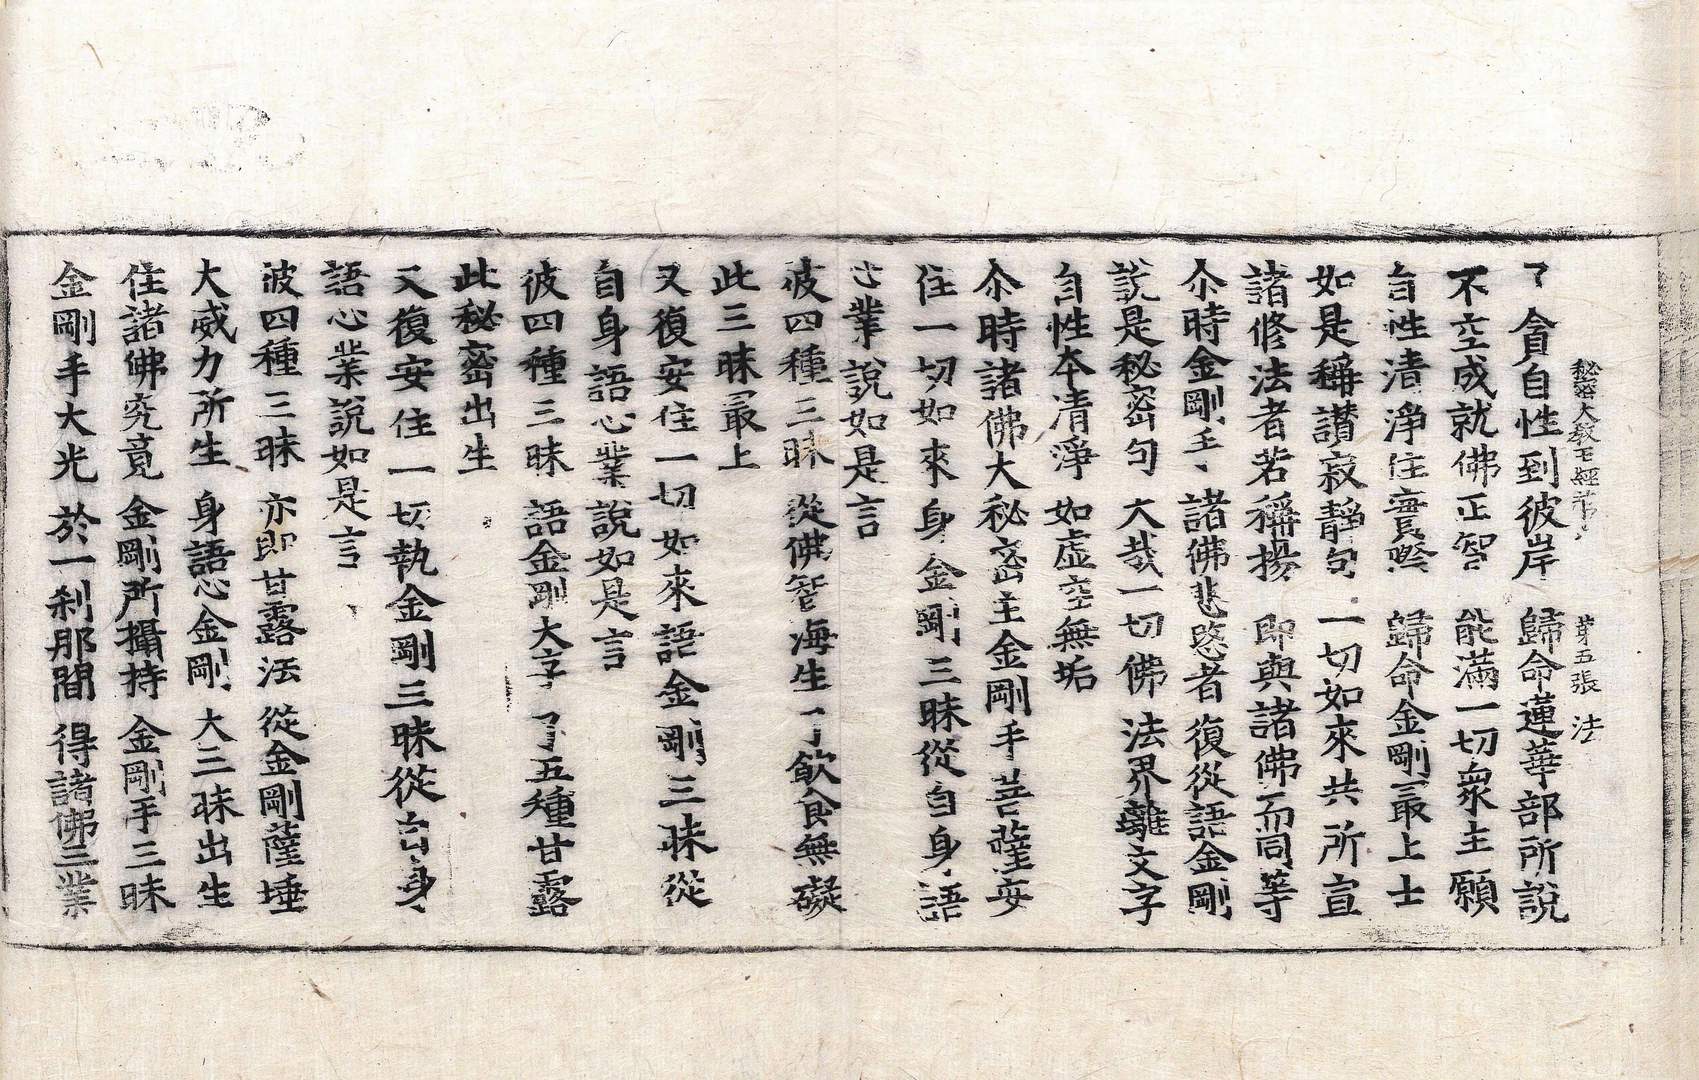 秘密大教王經苐六 苐五張 法
了貪自性到彼岸 歸命蓮華部所說
不空成就佛正智 能滿一切衆主願
自性清淨住實際 歸命金剛最上士
如是稱讃寂靜句 一切如來共所宣
諸修法者若稱揚 即與諸佛而同等
尒時金剛手 諸佛悲愍者 復從語金剛
說是秘密句 大哉一切佛 法界離文字
自性本清淨 如虛空無垢
尒時諸佛大秘密主金剛手菩薩安
住一切如來身金剛三昧從自身語
心業說如是言
彼四種三昧 從佛智海生 了飲食無礙
此三昧最上
又復安住一切如來語金剛三昧從
自身語心業說如是言
彼四種三昧 語金剛大字 了五種甘露
此秘密出生
又復安住一切執金剛三昧從自身
語心業說如是言
彼四種三昧 亦即甘露法 從金剛薩埵
大威力所生 身語心金剛 大三昧出生
住諸佛究竟 金剛所攝持 金剛手三昧
金剛手大光 於一刹那間 得諸佛三業